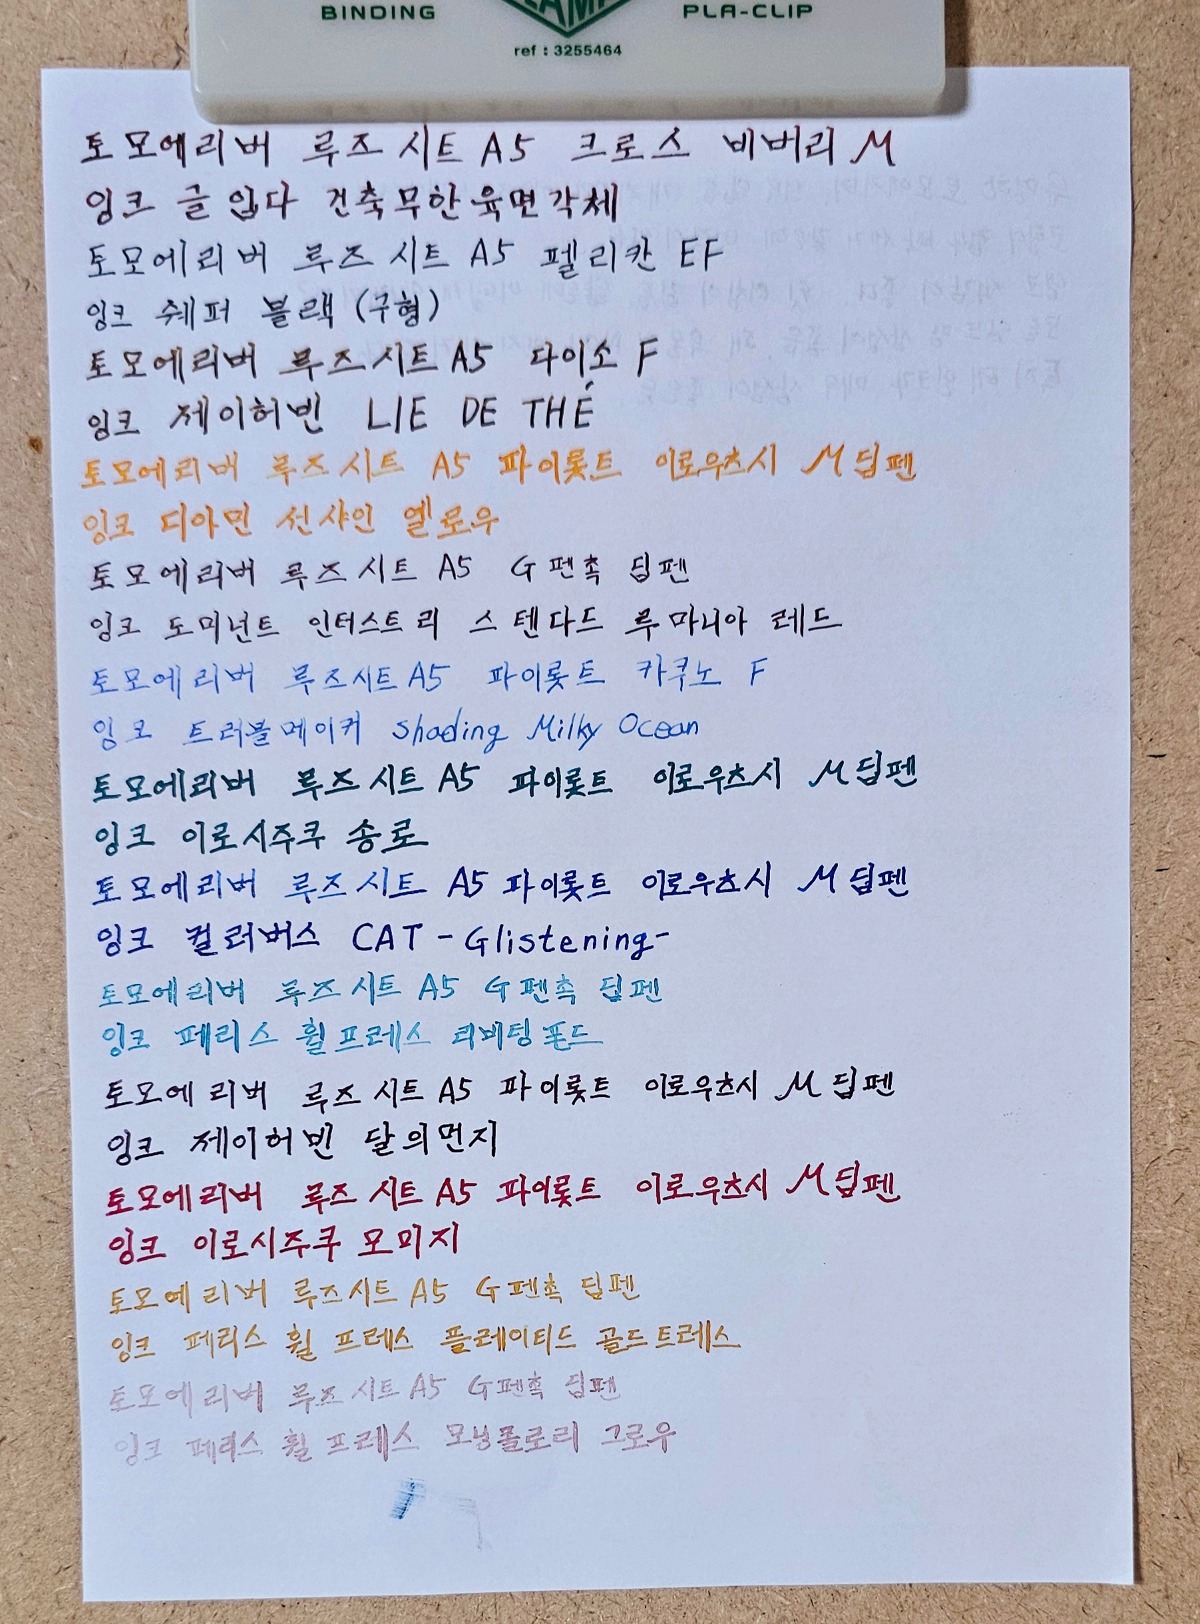 BINDING PLA-CLIP
ref : 3255464
토모에리버 루즈 시트 A5 크로스 비버리 M
잉크 글입다 건축무한육면각체
토모에리버 루즈 시트 A5 펠리칸 EF
잉크 쉐퍼 블랙 (구형)
토모에리버 루즈시트 A5 다이소 F
잉크 제이허빈 LIE DE THÉ
토모에리버 루즈시트 A5 파이롯트 이로우츠시 M딥펜
잉크 디아민 선샤인 옐로우
토모에리버 루즈 시트 A5 G펜촉 딥펜
잉크 도미넌트 인더스트리 스텐다드 루마니아 레드
토모에리버 루즈시트 A5 파이롯트 카쿠노 F
잉크 트러블메이커 Shading Milky Ocean
토모에리버 루즈 시트 A5 파이롯트 이로우츠시 M딥펜
잉크 이로시주쿠 송로
토모에리버 루즈 시트 A5 파이롯트 이로우츠시 M 딥펜
잉크 컬러버스 CAT -Glistening-
토모에리버 루즈 시트 A5 G펜촉 딥펜
잉크 페리스 휠 프레스 리버팅폰드
토모에리버 루즈 시트 A5 파이롯트 이로우츠시 M 딥펜
잉크 제이허빈 달의먼지
토모에리버 루즈 시트 A5 파이롯트 이로우츠시 M딥펜
잉크 이로시주쿠 모미지
토모에리버 루즈시트 A5 G펜촉 딥펜
잉크 페리스 휠 프레스 플레이티드 골드트레스
토모에리버 루즈 시트 A5 G펜촉 딥펜
잉크 페리스 휠 프레스 모닝플로리 그로우